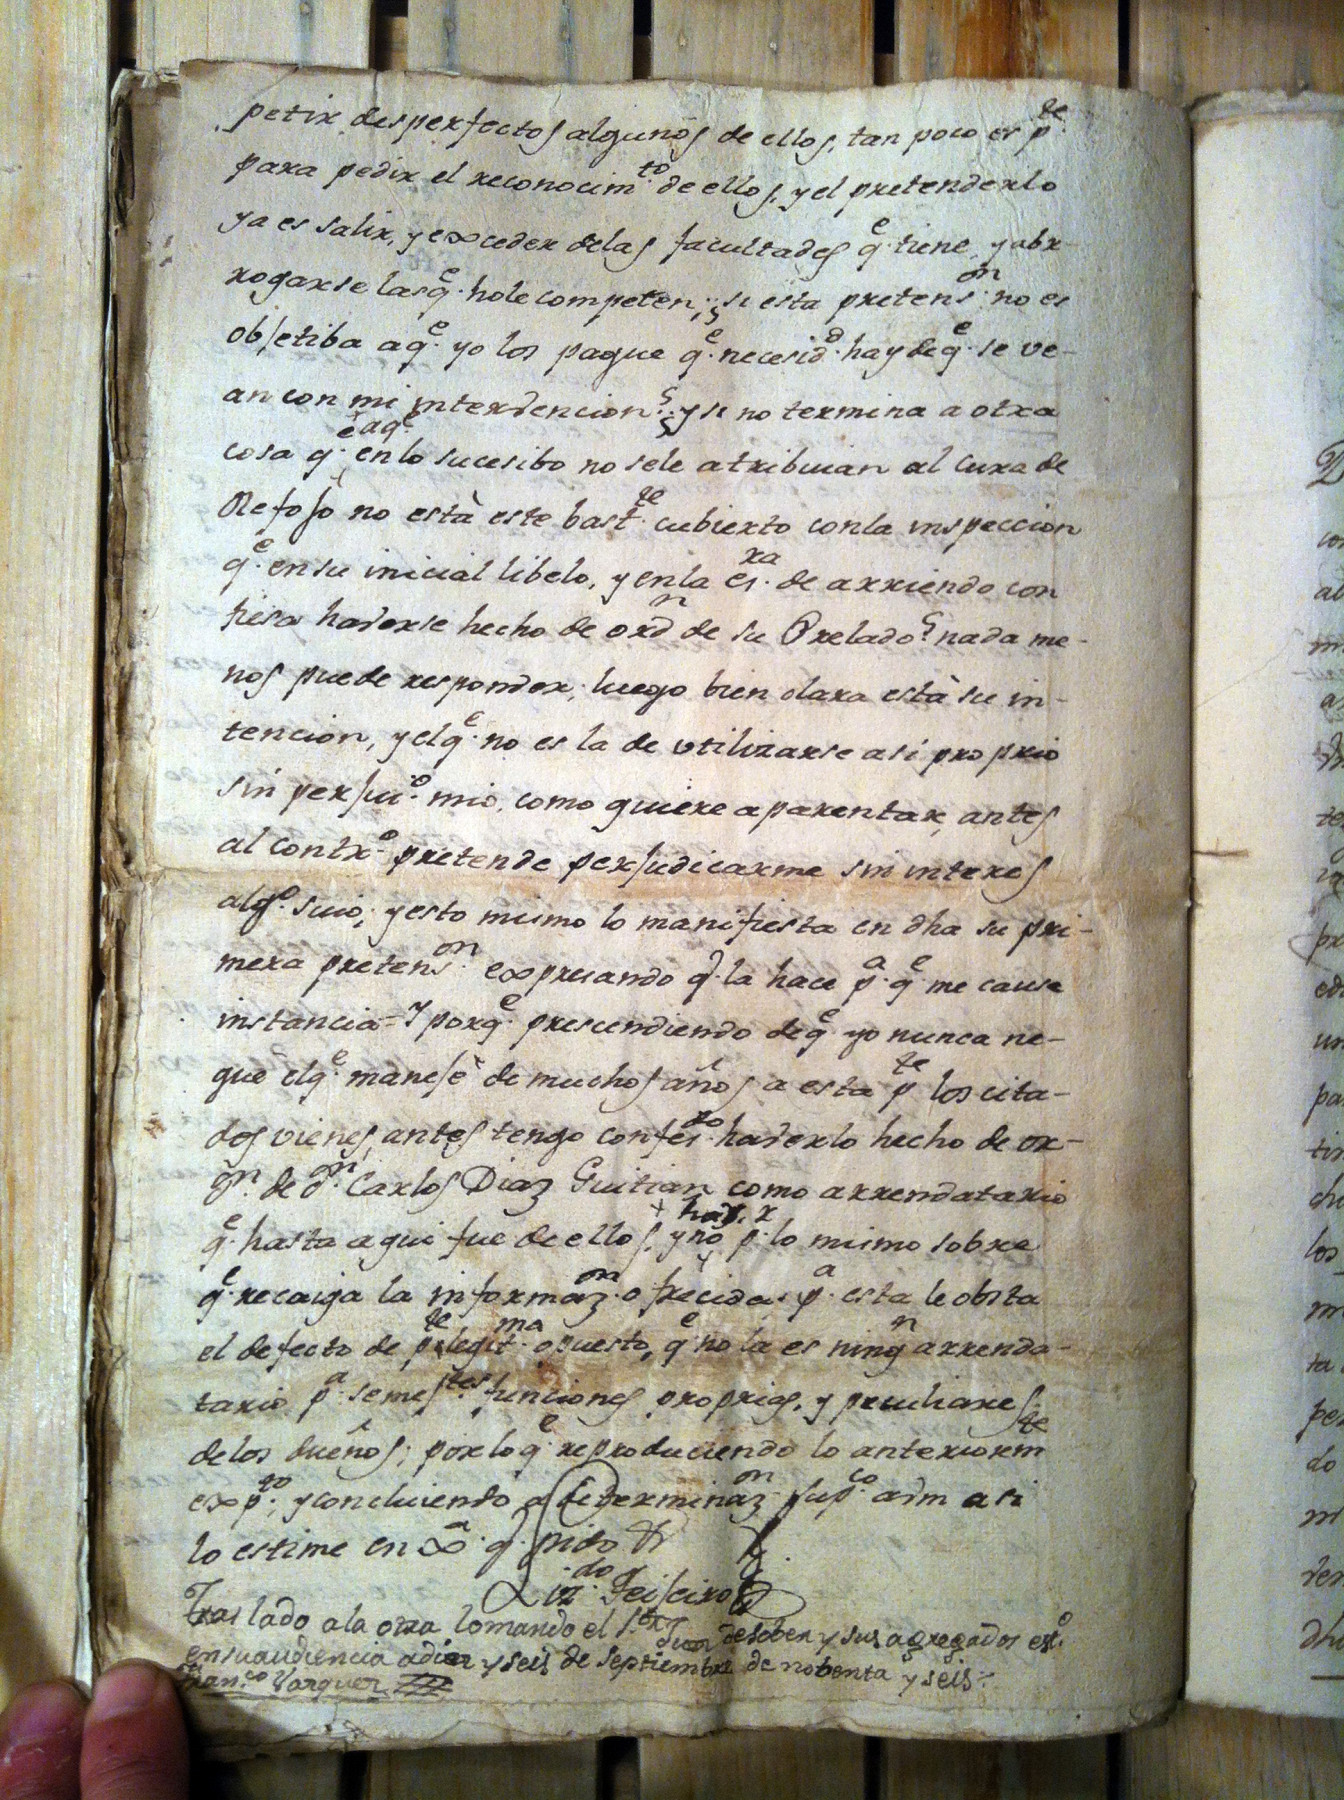 petir desperfectos algunos de ellos, tan poco es p.te
para pedir el reconocim.to de ellos, y el pretenderlo
ya es salir, y exceder delas facultades q.e tiene, y abr-
rogarse las q.e nole competen; si esta pretens.on no es
objetiba aq.e yo los pague q.e necesid.d hay deq.e se ve-
an con mi intervencion? y si no termina a otra
cosa q.e aq.e en lo sucesibo no sele atribuian al cura de
Refojo no està este bast.te cubierto conla inspeccion
q.e en su inicial libelo, y enla es.ra de arriendo con
fiesa haverse hecho de ord.n de su Prelado? nada me-
nos puede responder; luego bien clara està su in-
tencion, y elq.e no es la de utilizarse asi proprio
sin perjui.o mio, como quiere aparentar, antes
al contr.o pretende perjudicarme sin interes
alg.o suio; y esto mismo lo manifiesta en dha su pri-
mera pretens.on expresando q.e la hace p.a q.e me cause
instancia = Y porq.e prescindiendo deq.e yo nunca ne-
guè elq.e manejè de muchos años a esta p.te los cita-
dos vienes, antes tengo confes.do haverlo hecho de or-
n. de D.n Carlos Diaz Guitian como arrendatario
q.e hasta aqui fue de ellos, y no p.r lo mismo sobre
q.e recaiga la informaz.on ofrecida, p.a esta le obsta
el defecto de p.te legit.ma opuesto, q.e no la es ning.n arrenda-
tario p.a semej.tes funciones proprias, y peculiares
delos dueños; por lo q.e reproduciendo lo anteriorm.te
exp.to; y concluiendo a determinaz.on sup.co a Vm asi
lo estime en x.a q. pido &
Liz.do Teijeiro
Traslado ala otra lo mando el S.or Juez de soben y sus agregados est.o
ensuaudiencia adiez y seis de septiembre de nobenta y seis
Fran.co Varquez